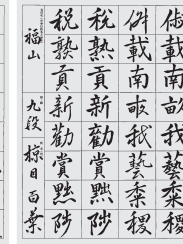 俶載南畝我藝黍稷
俶載南畝我藝黍稷
稅熟貢新勸賞黜陟
稅熟貢新勸賞黜陟
福山 九段 目 百葉